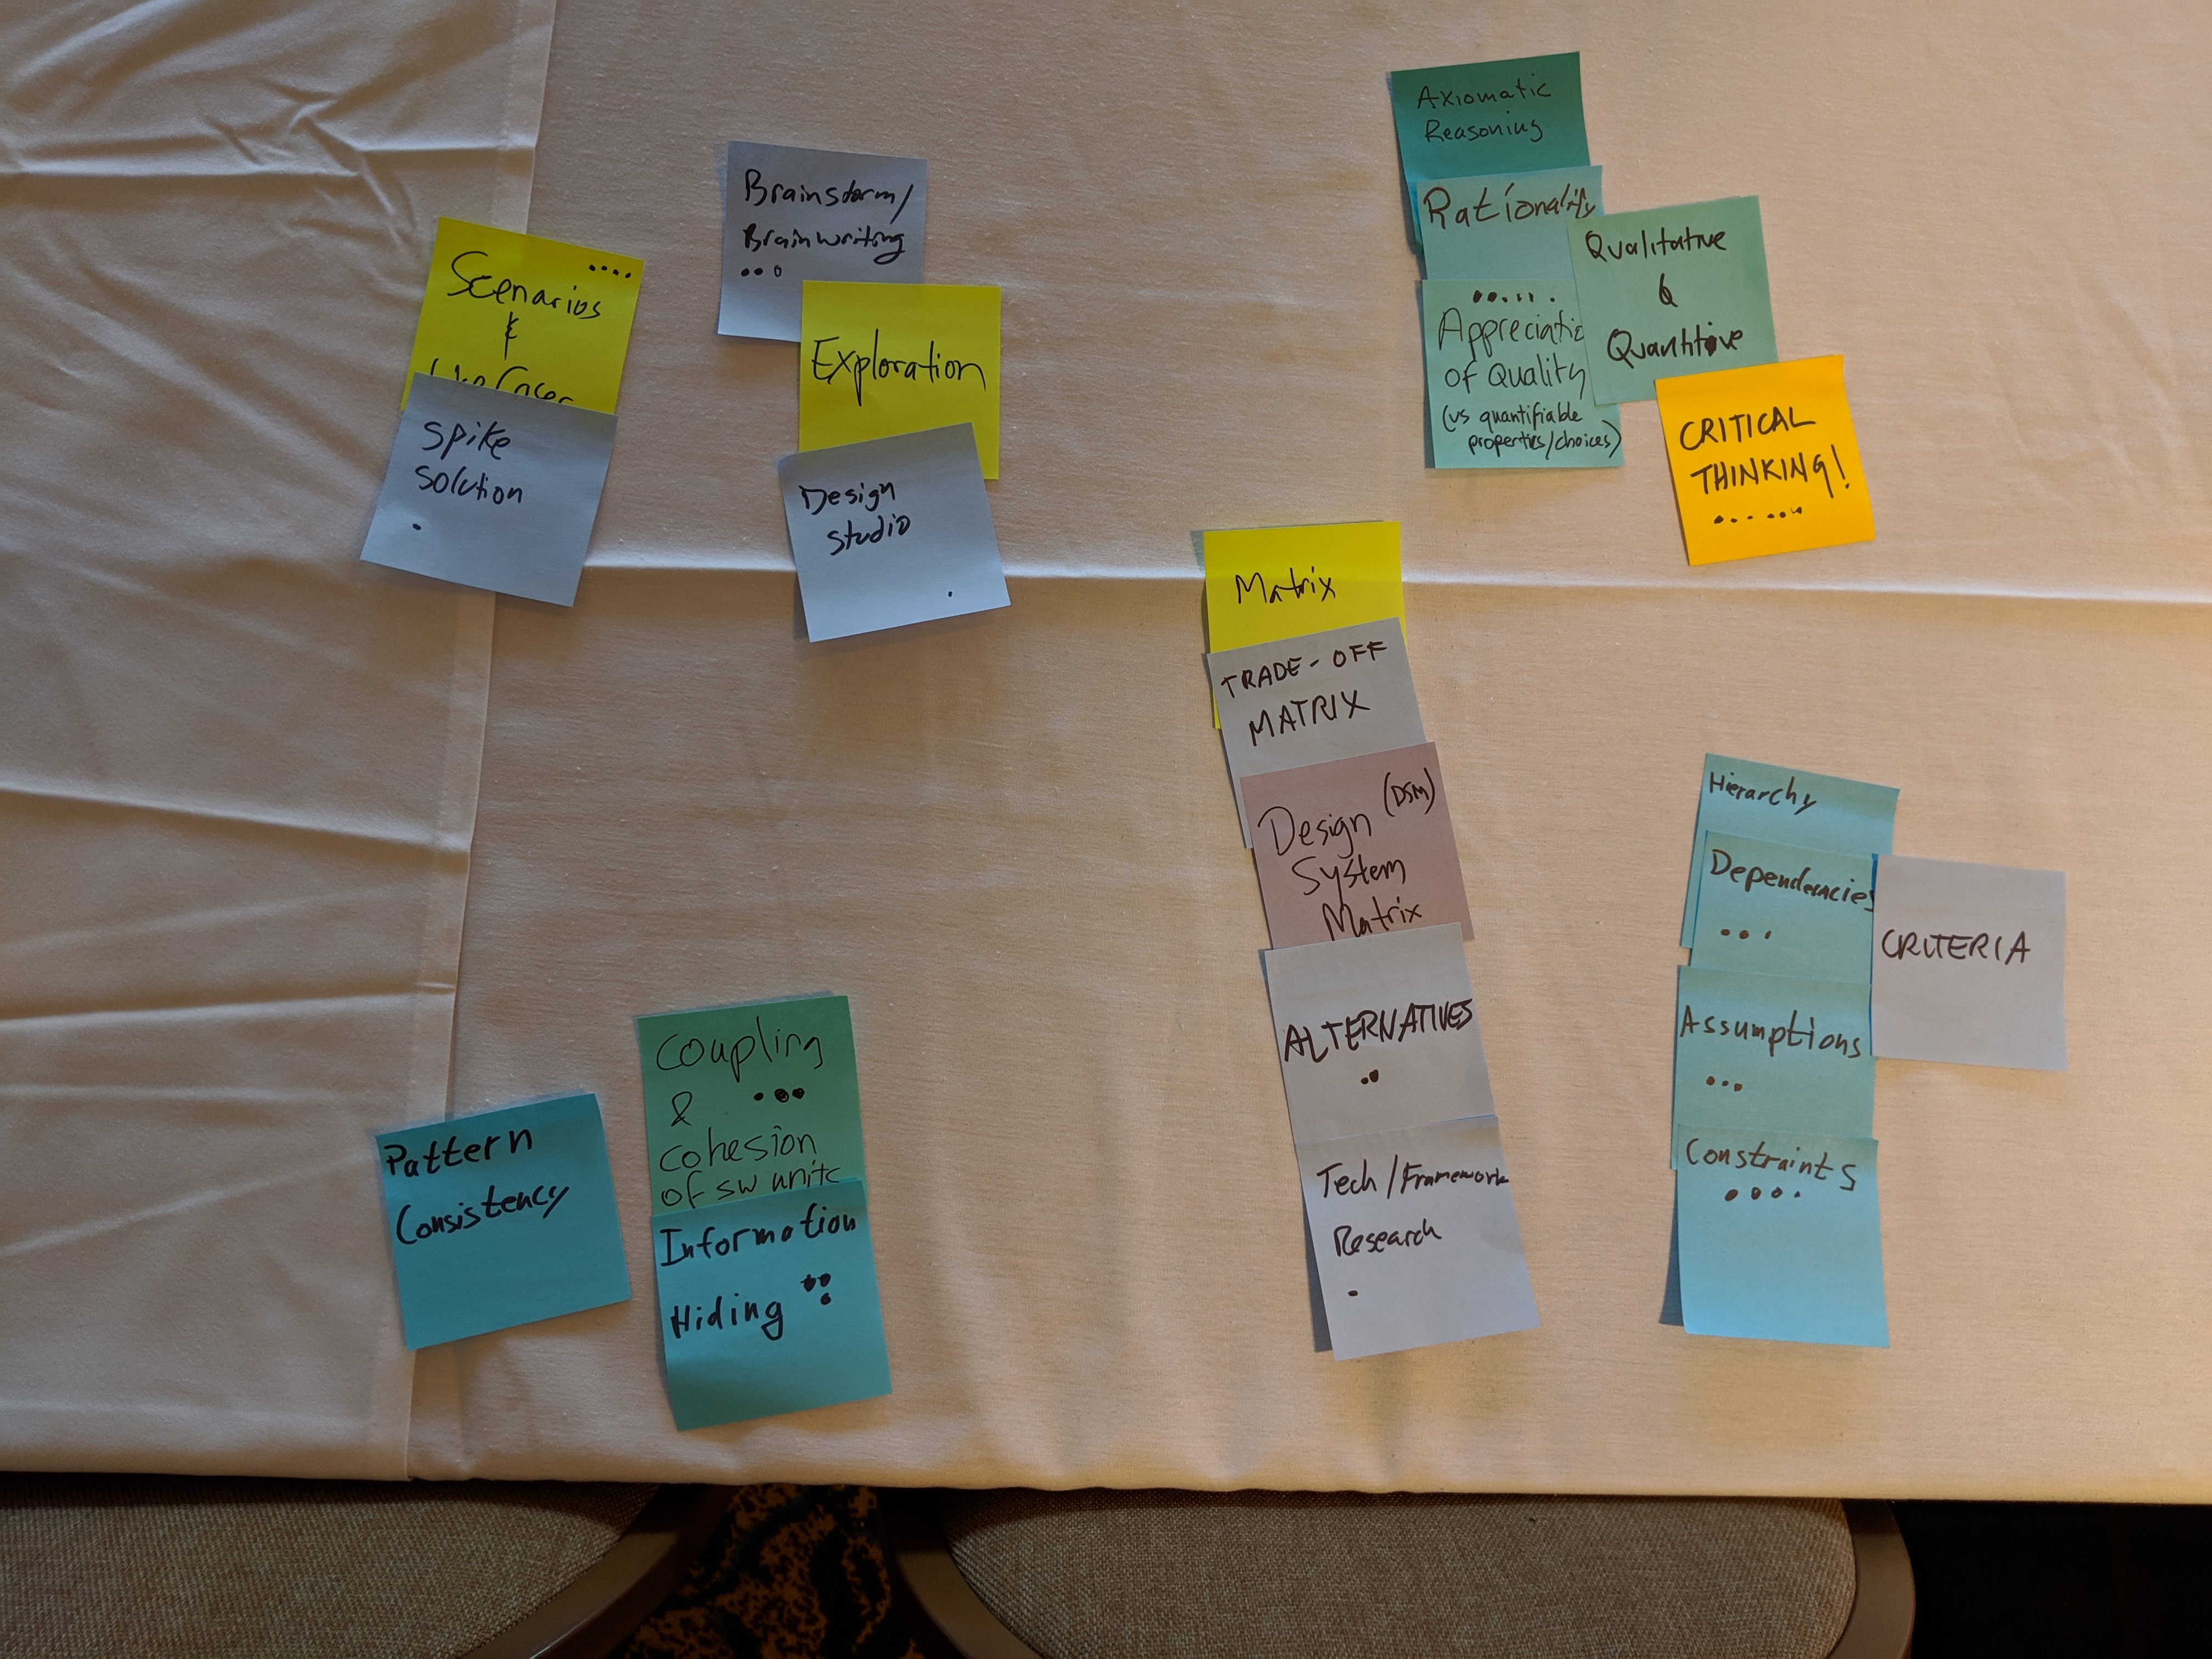 Scenarios
&
Use Cases
Spike
Solution
Brainstorm/
Brainwriting
Exploration
Design
Studio
Axiomatic
Reasoning
Rationality
Appreciatio
of Quality
(vs quantifiable
properties/choices)
Qualitative
&
Quantitive
CRITICAL
THINKING!
Matrix
TRADE-OFF
MATRIX
Design (DSM)
System
Matrix
ALTERNATIVES
Tech/Framework
Research
Hierarchy
Dependencies
Assumptions
Constraints
CRITERIA
Pattern
Consistency
Coupling
&
Cohesion
of sw units
Information
Hiding